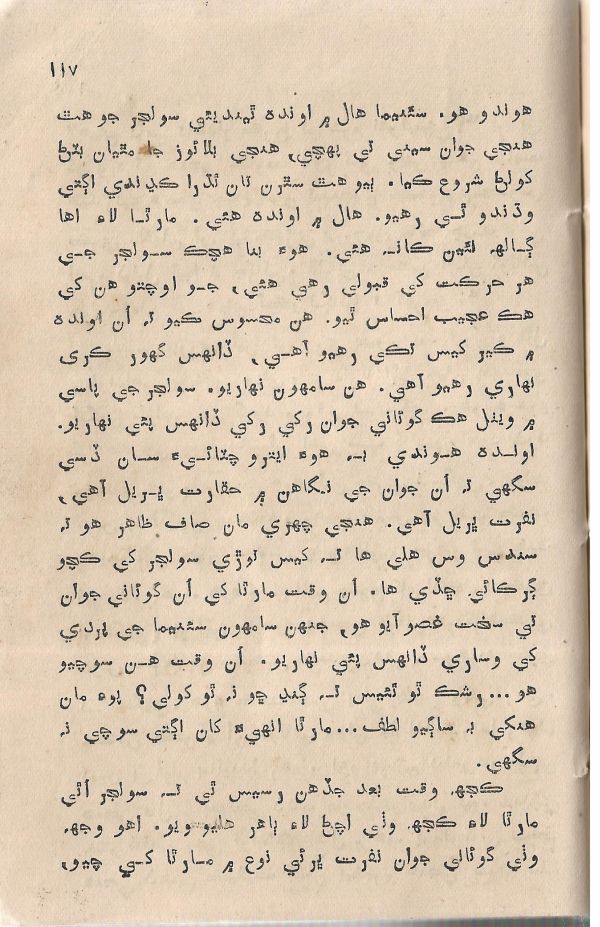 ١١٧
هوندو هو. سئنيما هال ۾ اونده ٿيندي ئي سولجر جو هٿ
هنجي جوان سيني تي پهچي، هنجي بلائوز جا مٿيان بٽڻ
کولڻ شروع ڪيا. ٻيو هٿ سٿرن تان ٿڌرا ڪڍندي اڳتي
وڌندو ئي رهيو. هال ۾ اونده هئي. مارٿا لاءِ اها
ڳالهه نئين ڪانه هئي. هوءَ بنا هچڪ سولجر جي
هر حرڪت کي قبولي رهي هئي، جو اوچتو هن کي
هڪ عجيب احساس ٿيو. هن محسوس ڪيو ته اُن اونده
۾ ڪير کيس تڪي رهيو آهي، ڏانهس گهور ڪري
نهاري رهيو آهي. هن سامهون نهاريو. سولجر جي پاسي
۾ ويٺل هڪ گوئاني جوان رکي رکي ڏانهس پئي نهاريو.
اونده هوندي به هوءَ ايترو چٽائيءَ سان ڏسي
سگهي ته اُن جوان جي نگاهن ۾ حقارت ڀريل آهي،
نفرت ڀريل آهي. هنجي چهري مان صاف ظاهر هو ته
سندس وس هلي ها ته کيس توڙي سولجر کي ڪچو
ڳرڪائي ڇڏي ها. اُن وقت مارٿا کي اُن گوئاني جوان
تي سخت غصو آيو هو، جنهن سامهون سئنيما جي پردي
کي وساري ڏانهس پئي نهاريو. اُن وقت هن سوچيو
هو...رشڪ ٿو ٿئيس ته ڳنڍ ڇو نه ٿو کولي؟ پوءِ مان
هنکي به ساڳيو لطف...مارٿا انهيءَ کان اڳتي سوچي نه
سگهي.
ڪجهه وقت بعد جڏهن رسيس ٿي ته سولجر اُٿي
مارٿا لاءِ ڪجهه وٺي اچڻ لاءِ ٻاهر هليو ويو. اهو وجهه
وٺي گوئاني جوان نفرت ڀرئي نوع ۾ مارٿا کي چيو،